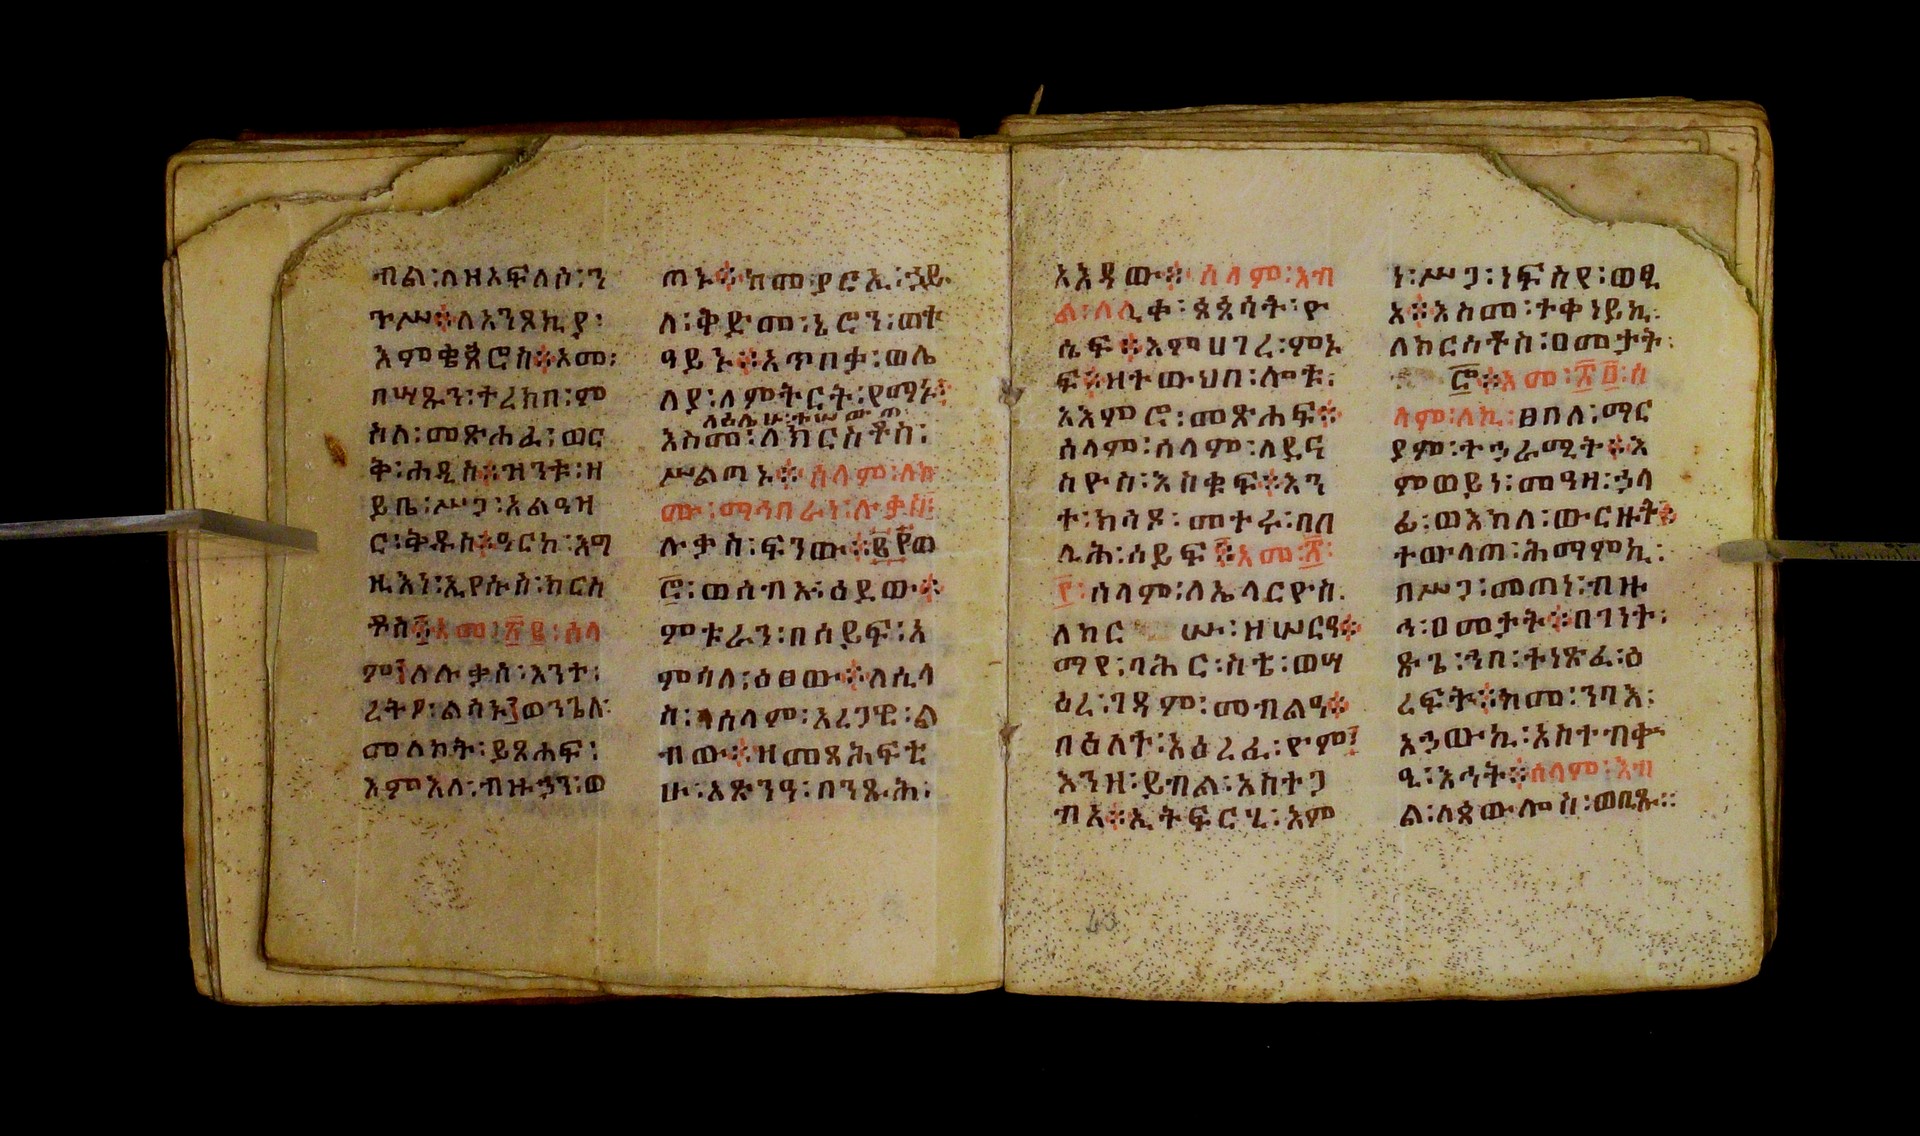 ብል፡ለዝእፍለስ፡ን
ጉሥ፨ለአንጾኪያ፡
እምቄጵሮስ፨አመ፡
በሣጹን፡ተረክበ፡ም
ስለ፡መጽሐፈ፡ወር
ቅ፡ሐዲስ፨ዝንቱ፡ዘ
ይቤ፡ሥጋ፡አልዓዛ
ር፡ቅዱስ፨ዓርክ፡እግ
ዚእነ፡ኢየሱስ፡ክርስ
ቶስ፨አመ፡፳፪፡ሰላ
ም፤ለሉቃስ፡እንተ፡
ረትዖ፡ልሳኑ፤ወንጌለ፡
መለኮት፡ይጸሐፍ፡
እምእለ፡ብዙኃን፡ወ
ጠኑ፨ከመ፡ያሮኢ፡ኃይ
ለ፡ቅድመ፡ኔሮን፡ወተ
ዓይኑ፨አጥበቃ፡ወሌ
ለያ፡ለምትርት፡የማኑ፤
ለፅሌሁ፡ተሠውጠ
እስመ፡ለክርስቶስ፡
ሥልጣኑ፨ሰላም፡ለክ
ሙ፡ማኅበራነ፡ሉቃስ፡
ሉቃስ፡ፍንው፨፪፻ወ
፸፡ወሰብኡ፡ዕደው፨
ምቱራን፡በሰይፍ፡አ
ምሳለ፡ዕፀው፨ለሲላ
ስ፡ሰላም፡አረጋዊ፡ል
ብው፨ዘመጻሕፍቲ
ሁ፡አጽንዓ፡በንጹሕ፡
አእዳው፨ሰላም፡እብ
ል፡ለሊቀ፡ጳጳሳት፡ዮ
ሴፍ፨እምሀገረ፡ምኑ
ፍ፨ዘተውህበ፡ሎቱ፡
አእምሮ፡መጽሐፍ፨
ሰላም፡ሰላም፡ለዲና
ስዮስ፡እስቁፍ፨እን
ተ፡ክሳዶ፡መተሩ፡በበ
ሊሕ፡ሰይፍ፨አመ፡፳
፫፡ሰላም፡ለኤላርዮስ፡
ለክር ሡ፡ዘሠርዓ፨
ማየ፡ባሕር፡ስቴ፡ወሣ
ዕረ፡ገዳም፡መብልዓ፨
በዕለት፡አዕረፈ፡ዮም፤
እንዘ፡ይብል፡አስተጋ
ብእ፨ኢትፍርሂ፡እም
ነ፡ሥጋ፡ነፍስየ፡ወፂ
አ፨እስመ፡ተቀነይኪ፡
ለክርስቶስ፡ዐመታት፡
፸፨አመ፡፳፬፡ሰ
ላም፡ለኪ፡ፀበለ፡ማር
ያም፡ተኃራሚት፨እ
ምወይነ፡መዓዛ፡ኃላ
ፊ፡ወእክለ፡ውርዙት፨
ተውላጠ፡ሕማምኪ፡
በሥጋ፡መጠነ፡ብዙ
ኅ፡ዐመታት፨በገነት፡
ጽጌ፡ኀበ፡ትነጽፈ፡ዕ
ረፍት፨ከመ፡ንባእ፡
አኃውኪ፡አስተብቍ
ዒ፡እኅት፨ሰላም፡እብ
ል፡ለጳውሎስ፡ወቢጹ።
43